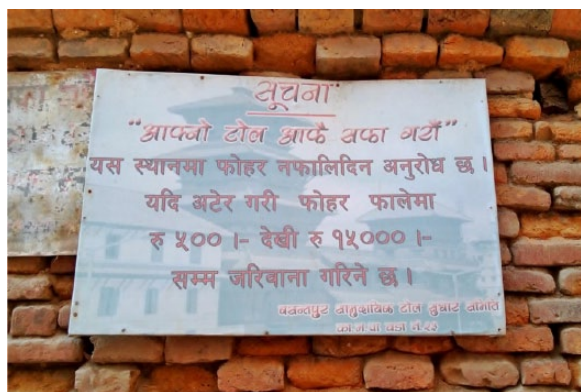 सूचना
"आफ्नो टोल आफै सफा गरौं"
यस स्थानमा फोहर नफालिदिन अनुरोध छ ।
यदि अटेर गरी फोहर फालेमा
रु ५०० ।- देखी रु १५००० ।-
सम्म जरिवाना गरिने छ ।
वसन्तपुर सामुदायिक टोल सुधार समिति
का म पा वडा नं २३